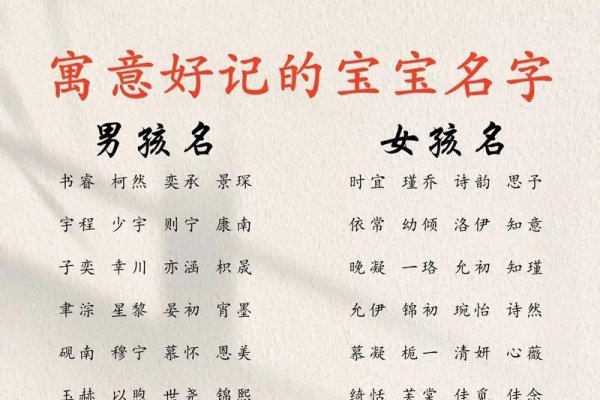 寓意好记的宝宝名字
男孩名 女孩名
书睿 柯然 奕承 景琛 时宜 瑾乔 诗韵 思予
宇程 少宇 则宁 康南 依常 幼倾 洛伊 知意
子奕 幸川 亦涵 枳晟 晚凝 一珞 允初 知瑾
聿淙 星黎 晏初 宵墨 允伊 锦初 琬怡 诗然
砚南 穆宁 慕怀 恩美 慕凝 栀一 清妍 心薇
玉赫 以煦 世尧 锦熙 绮恬 芙棠 佳觅 佳念